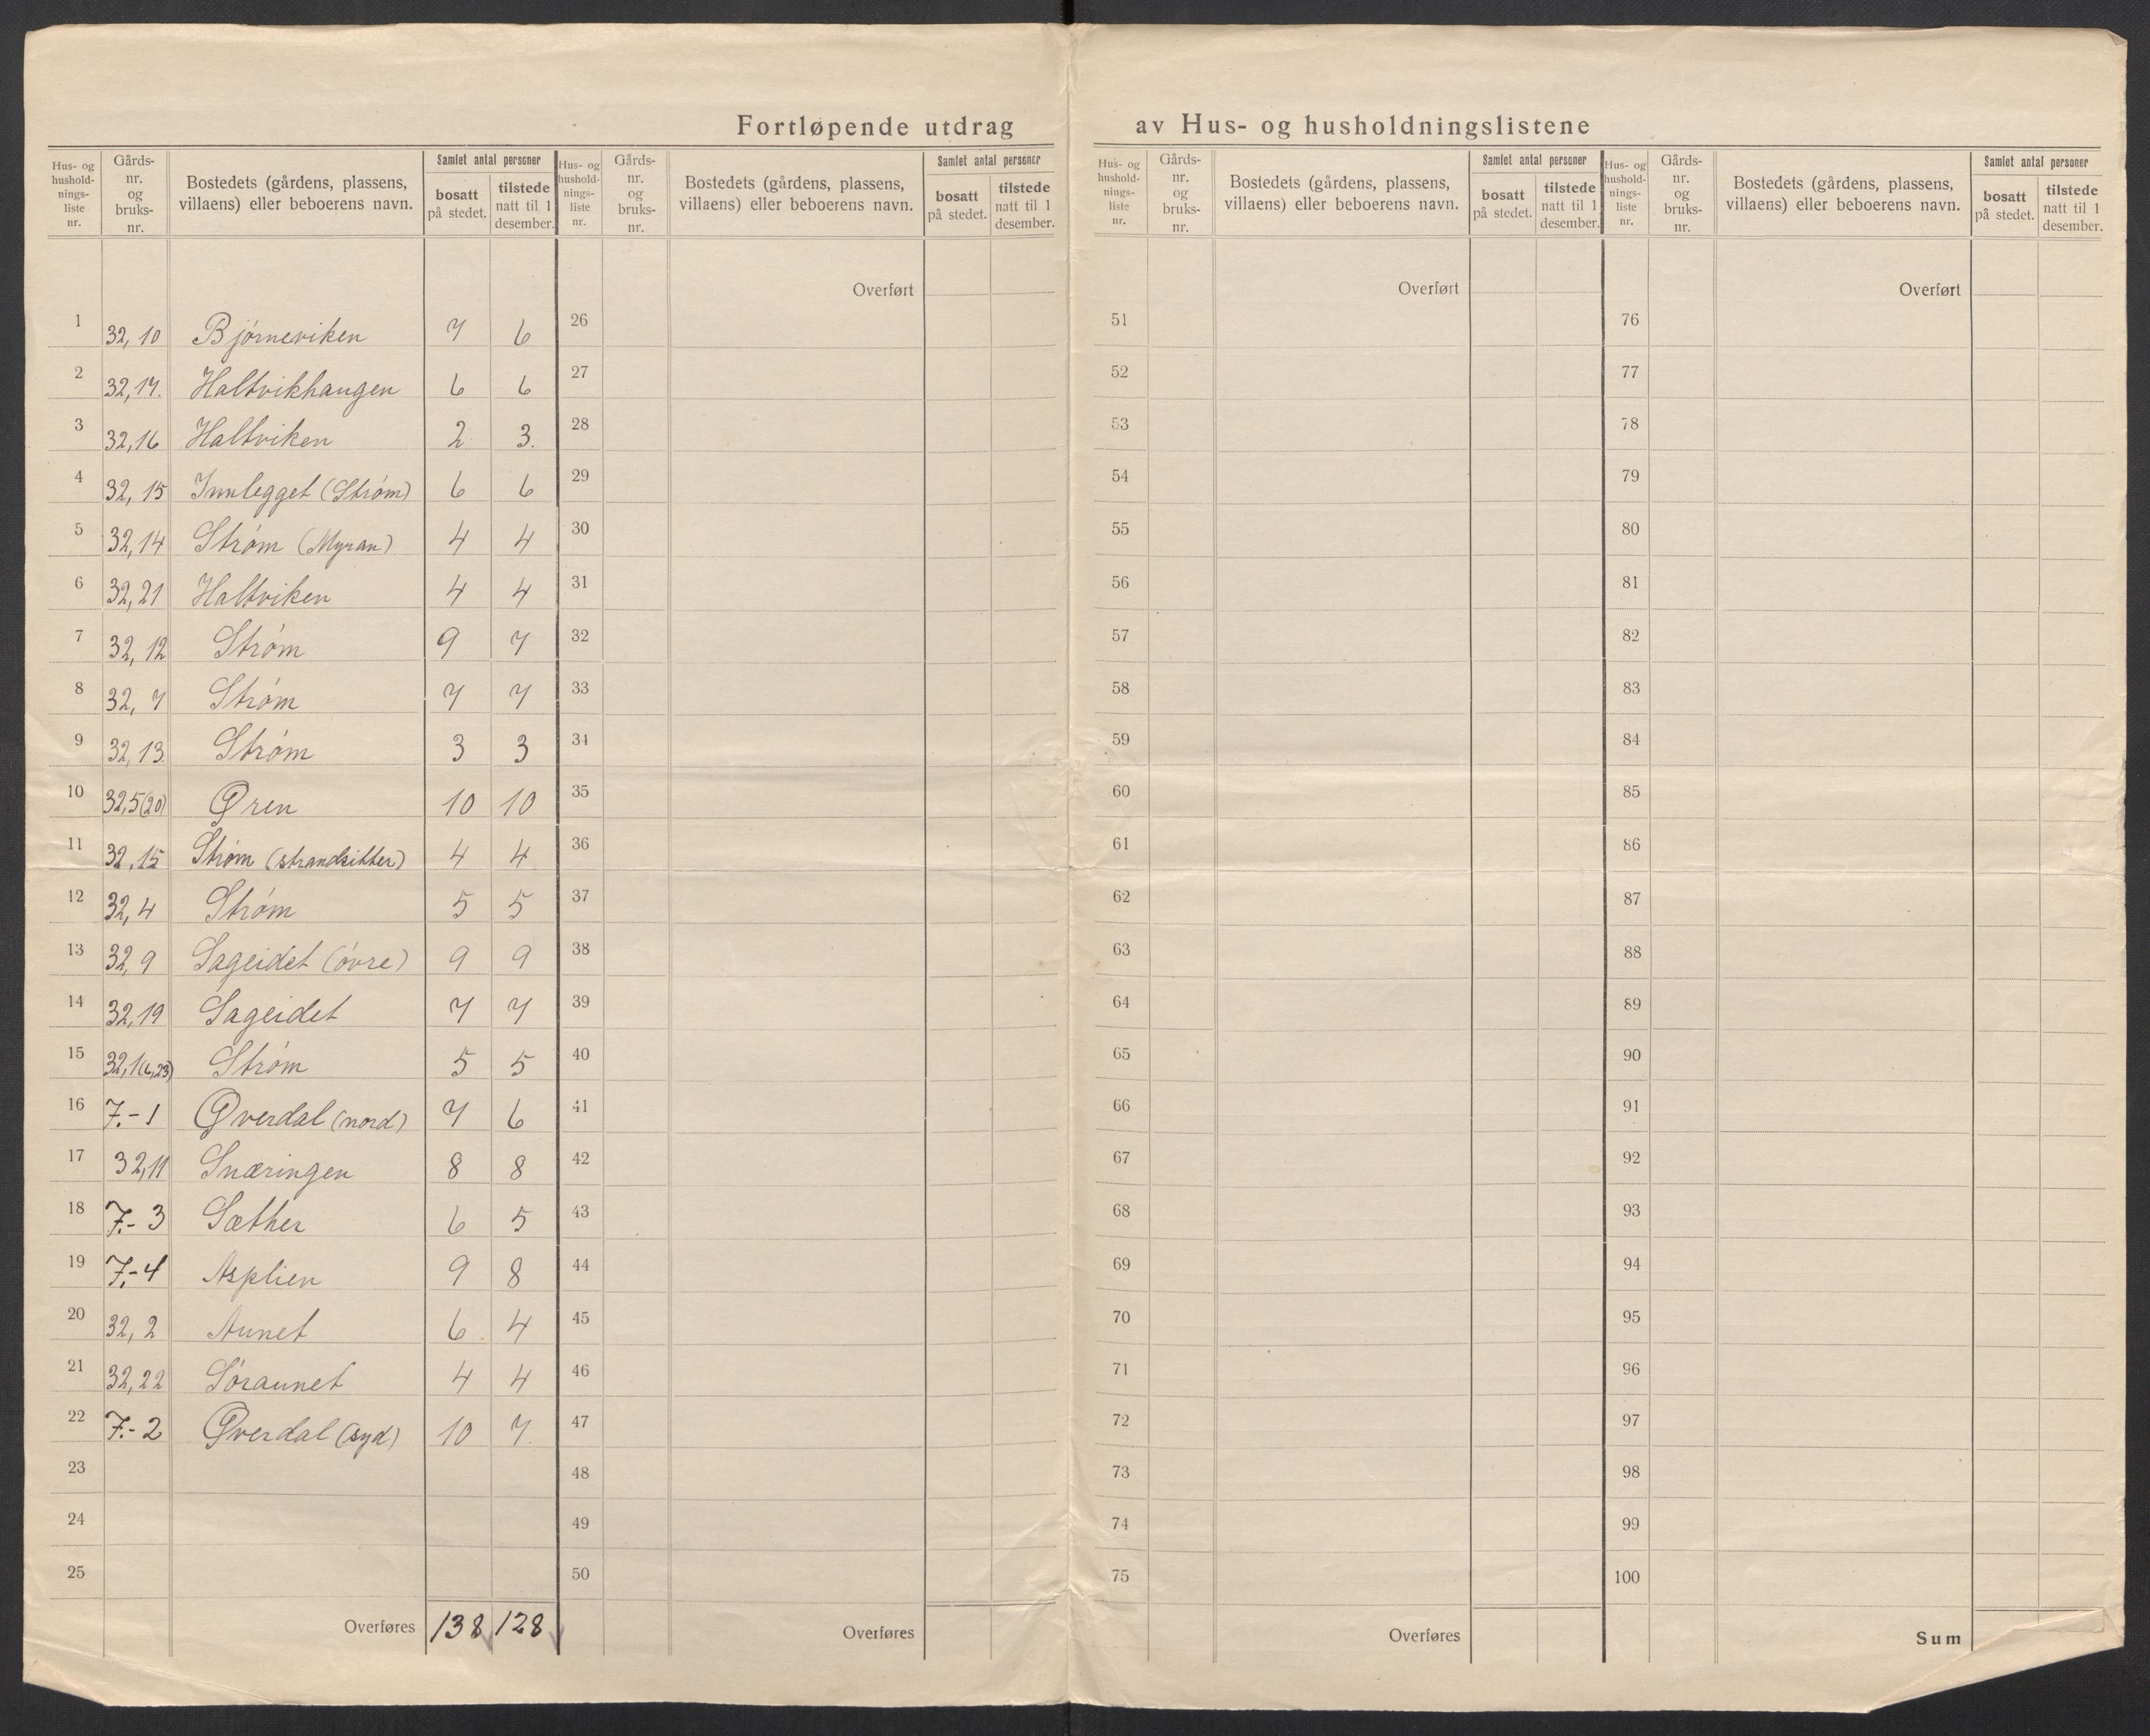 Fortløpende utdrag av Hus- og husholdningslistene
Hus- og hushold- nings- liste nr. | Gårds- nr. og bruks- nr. | Bostedets (gårdens, plassens, villaens) eller beboerens navn. | Samlet antal personer | bosatt på stedet. | tilstede natt til 1 desember.
Hus- og hushold- nings- liste nr. | Gårds- nr. og bruks- nr. | Bostedets (gårdens, plassens, villaens) eller beboerens navn. | Samlet antal personer | bosatt på stedet. | tilstede natt til 1 desember.
Hus- og hushold- nings- liste nr. | Gårds- nr. og bruks- nr. | Bostedets (gårdens, plassens, villaens) eller beboerens navn. | Samlet antal personer | bosatt på stedet. | tilstede natt til 1 desember.
Hus- og hushold- nings- liste nr. | Gårds- nr. og bruks- nr. | Bostedets (gårdens, plassens, villaens) eller beboerens navn. | Samlet antal personer | bosatt på stedet. | tilstede natt til 1 desember.
Overført Overført Overført
1 32, 10 Bjørneviken 7 6 26 51 76
2 32, 17. Haltvikhaugen 6 6 27 52 77
3 32, 16 Haltviken 2 3. 28 53 78
4 32, 15 Innlegget (Strøm) 6 6 29 54 79
5 32, 14 Strøm (Myran) 4 4 30 55 80
6 32, 21 Haltviken 4 4 31 56 81
7 32, 12 Strøm 9 7 32 57 82
8 32, 7 Strøm 7 7 33 58 83
9 32, 13. Strøm 3 3 34 59 84
10 32,5(20) Øren 10 10 35 60 85
11 32, 15 Strøm (strandsitter) 4 4 36 61 86
12 32, 4 Strøm 5 5 37 62 87
13 32, 9 Sageidet (øvre) 9 9 38 63 88
14 32, 19 Sageidet 7 7 39 64 89
15 32,1(6,23) Strøm 5 5 40 65 90
16 7.-1 Øverdal (nord) 7 6 41 66 91
17 32,11 Snæringen 8 8 42 67 92
18 7.-3 Sæther 6 5 43 68 93
19 7.-4 Asplien 9 8 44 69 94
20 32, 2 Aunet 6 4 45 70 95
21 32, 22 Søraunet 4 4 46 71 96
22 7.-2 Øverdal (syd) 10 7 47 72 97
23 48 73 98
24 49 74 99
25 50 75 100
Overføres 138 128 Overføres Overføres Sum